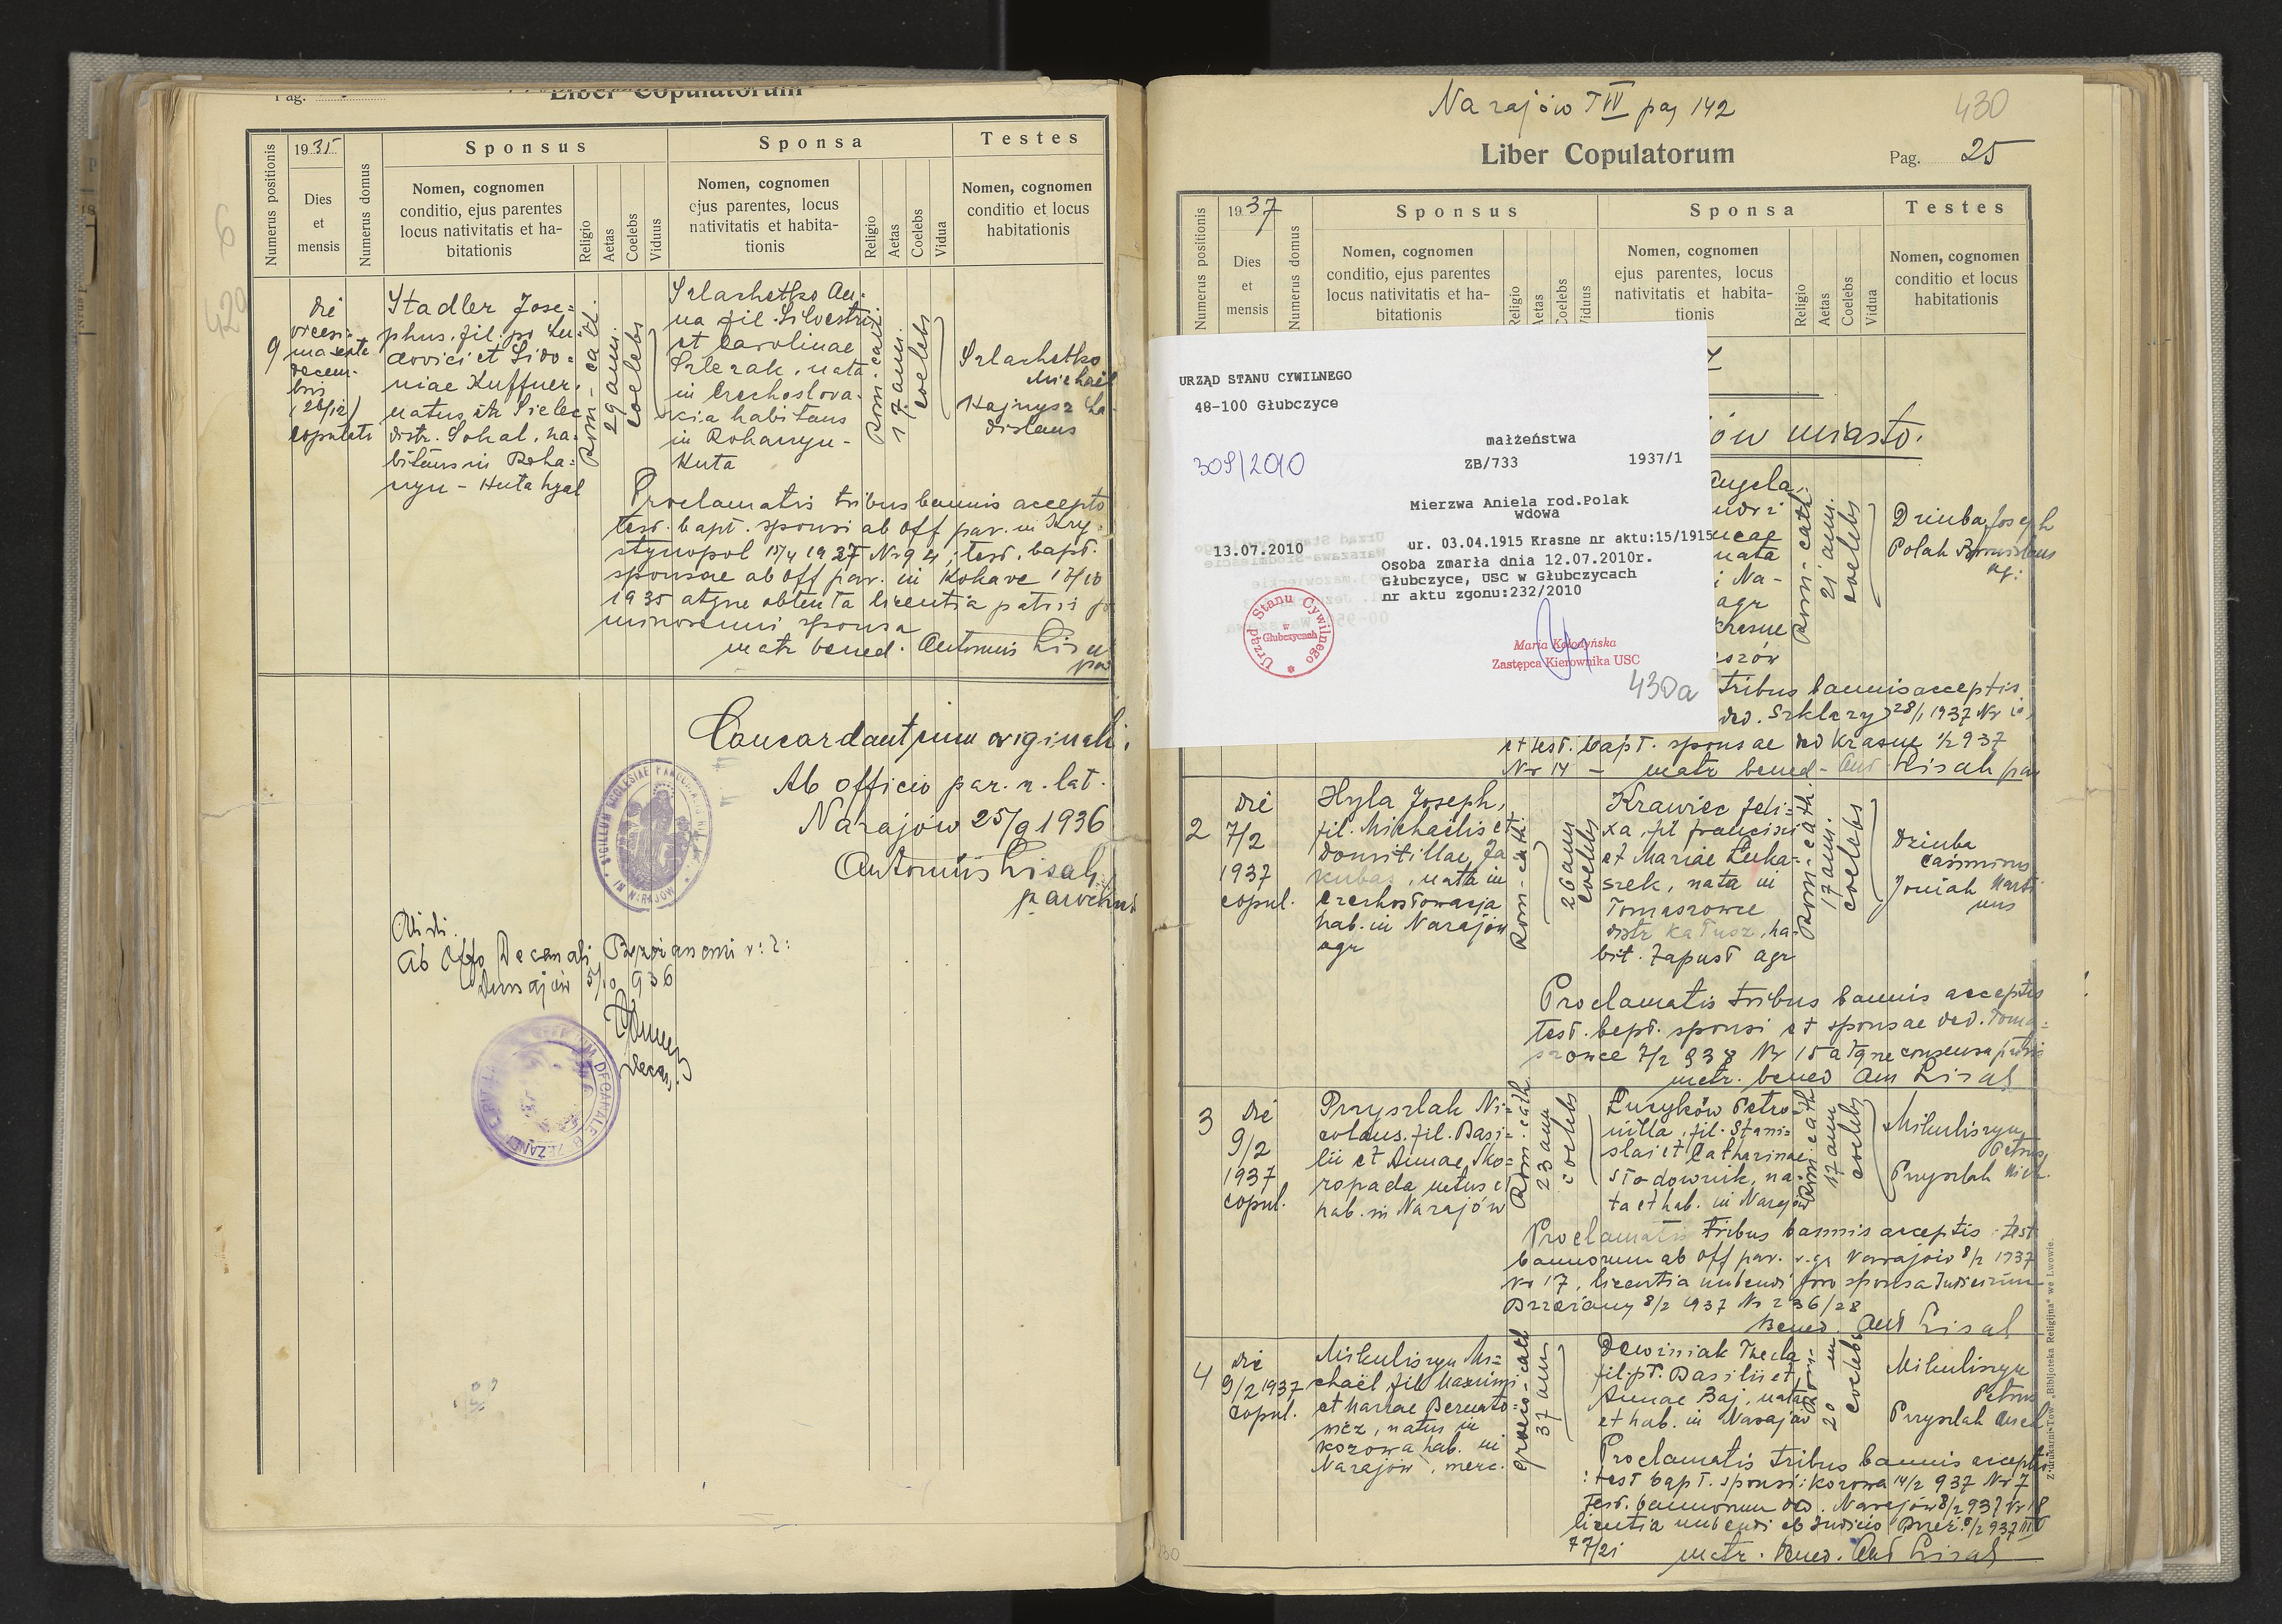 Pag.
Liber Copulatorum
Numerus positionis
19 35
Dies
et
mensis
Numerus domus
Sponsus
Nomen, cognomen
conditio, ejus parentes
locus nativitatis et ha-
bitationis
Religio
Aetas
Coelebs
Viduus
Sponsa
Nomen, cognomen
ejus parentes, locus
nativitatis et habita-
tionis
Religio
Aetas
Coelebs
Vidua
Testes
Nomen, cognomen
conditio et locus
habitationis
9
die
decem-
bris
(26/12)
copulati
Stadler Jose=
phus, fil. Lu=
dovici et Sido=
niae Kuffner,
natus in Sielec
distr. Sokal, ha-
bitans in Roha=
czyn - Huta
Rom-cath.
29 ann.
coelebs
Szlachetko An-
na fil. Silvestri
et Carolinae
Szlezak, nata
in Czechoslova-
kia habitans
in Rohaczyn-
Huta
Rom-cath.
17 ann.
coelebs
Szlachetko
Michael
Hajnysz La-
dislaus
Proclamatis tribus bannis accepto
test. bapt. sponsi ab off par. in Kry-
stynopol 15/4 1937 Nr 94, test. bapt.
sponsae ab off par. in Kohave 17/10
1935 atque obtenta licentia patris
sponsa
matr bened. Antonius Lisak
Concordant cum originali.
Ab officio par. r. lat.
Narajów 25/9 1936
Antonius Lisak
parochus
Vidi.
Ab Offo Decanali Brzezanensi r: l:
Dunajów 5/10 936
Decan.
429
Narajów T IV pag 142
430
Liber Copulatorum
Pag. 25
Numerus positionis
19 37
Dies
et
mensis
Numerus domus
Sponsus
Nomen, cognomen
conditio, ejus parentes
locus nativitatis et ha-
bitationis
Religio
Aetas
Coelebs
Viduus
Sponsa
Nomen, cognomen
ejus parentes, locus
nativitatis et habita-
tionis
Religio
Aetas
Coelebs
Vidua
Testes
Nomen, cognomen
conditio et locus
habitationis
URZĄD STANU CYWILNEGO
48-100 Głubczyce
małżeństwa
309/2010
ZB/733 1937/1
Mierzwa Aniela rod.Polak
wdowa
13.07.2010
ur. 03.04.1915 Krasne nr aktu:15/1915
Osoba zmarła dnia 12.07.2010r.
Głubczyce, USC w Głubczycach
nr aktu zgonu:232/2010
Urząd Stanu Cywilnego
w
Głubczycach
Maria Kołodyńska
Zastępca Kierownika USC
430a
ów miasto.
Angela,
nata
i Na-
agr
Krasne
Rom-cath.
21 ann.
coelebs
Dziuba Joseph
Polak Bronislaus
agr
tribus bannis acceptis
Szklary 28/1 1937 Nr
et test. bapt. sponsae de Krasne 1/2 937
Nr 14 - matr bened - Ant Lisak par
2
die
7/2
1937
copul.
Hyla Joseph,
fil. Michaelis et
Domitillae Ja
kubas, nata in
Czechosłowacja
hab. in Narajów
agr
Rom-cath.
26 ann
coelebs
Krawiec Feli=
xa, fil Francisci
et Mariae Łuka=
szek, nata in
Tomaszowce
distr Kałusz, ha-
bit. Zapust agr
Rom-cath.
17 ann.
coelebs
Dziuba
Casimirus
Joniak Marti
nus
Proclamatis tribus bannis acceptis
test. bapt. sponsi et sponsae ded. Toma=
szowce 7/2 937 Nr 15 atque consensu patris
metr. bened Ant Lisak
3
die
9/2
1937
copul.
Przyszlak Ni=
colaus, fil. Basi=
lii et Annae Sko=
ropada natus et
hab. in Narajów
Rom. cath.
23 ann
coelebs
Łucyków Petro=
nilla, fil. Stani=
slai et Catharinae
Słodownik, na-
ta et hab. in Narajów
Rom. cath
17 ann
coelebs
Mikuliszyn
Petrus
Przyszlak Mich.
Proclamatis tribus bannis acceptis test
bannorum ab off par. r. gr Narajów 8/2 1937
Nr 17, licentia nubendi pro sponsa Judicium
Brzeżany 8/2 1937 Nr 236/28
Bened. Ant Lisak
4
die
9/2 1937
copul.
Mikuliszyn Mi=
chael fil Maximi
et Mariae Bernato=
wicz, natus in
Kozowa hab. in
Narajów, merc.
graeco-cath
37 ann
Dowiniak Thecla
fil. pt. Basilii et
Annae Baj, nata
et hab. in Narajów
Rom-
20 ann
coelebs
Mikuliszyn
Petrus
Przyszlak Mich
Proclamatis tribus bannis acceptis
test bapt. sponsi: Kozowa 14/2 937 Nr 7
test. bannorum ded. Narajów 8/2 937 Nr 18
licentia nubendi ab Judicio Brzeż. 8/2 937
77/21 metr. bened. Ant Lisak
Z drukarni Tow. „Bibljoteka Religijna" we Lwowie.